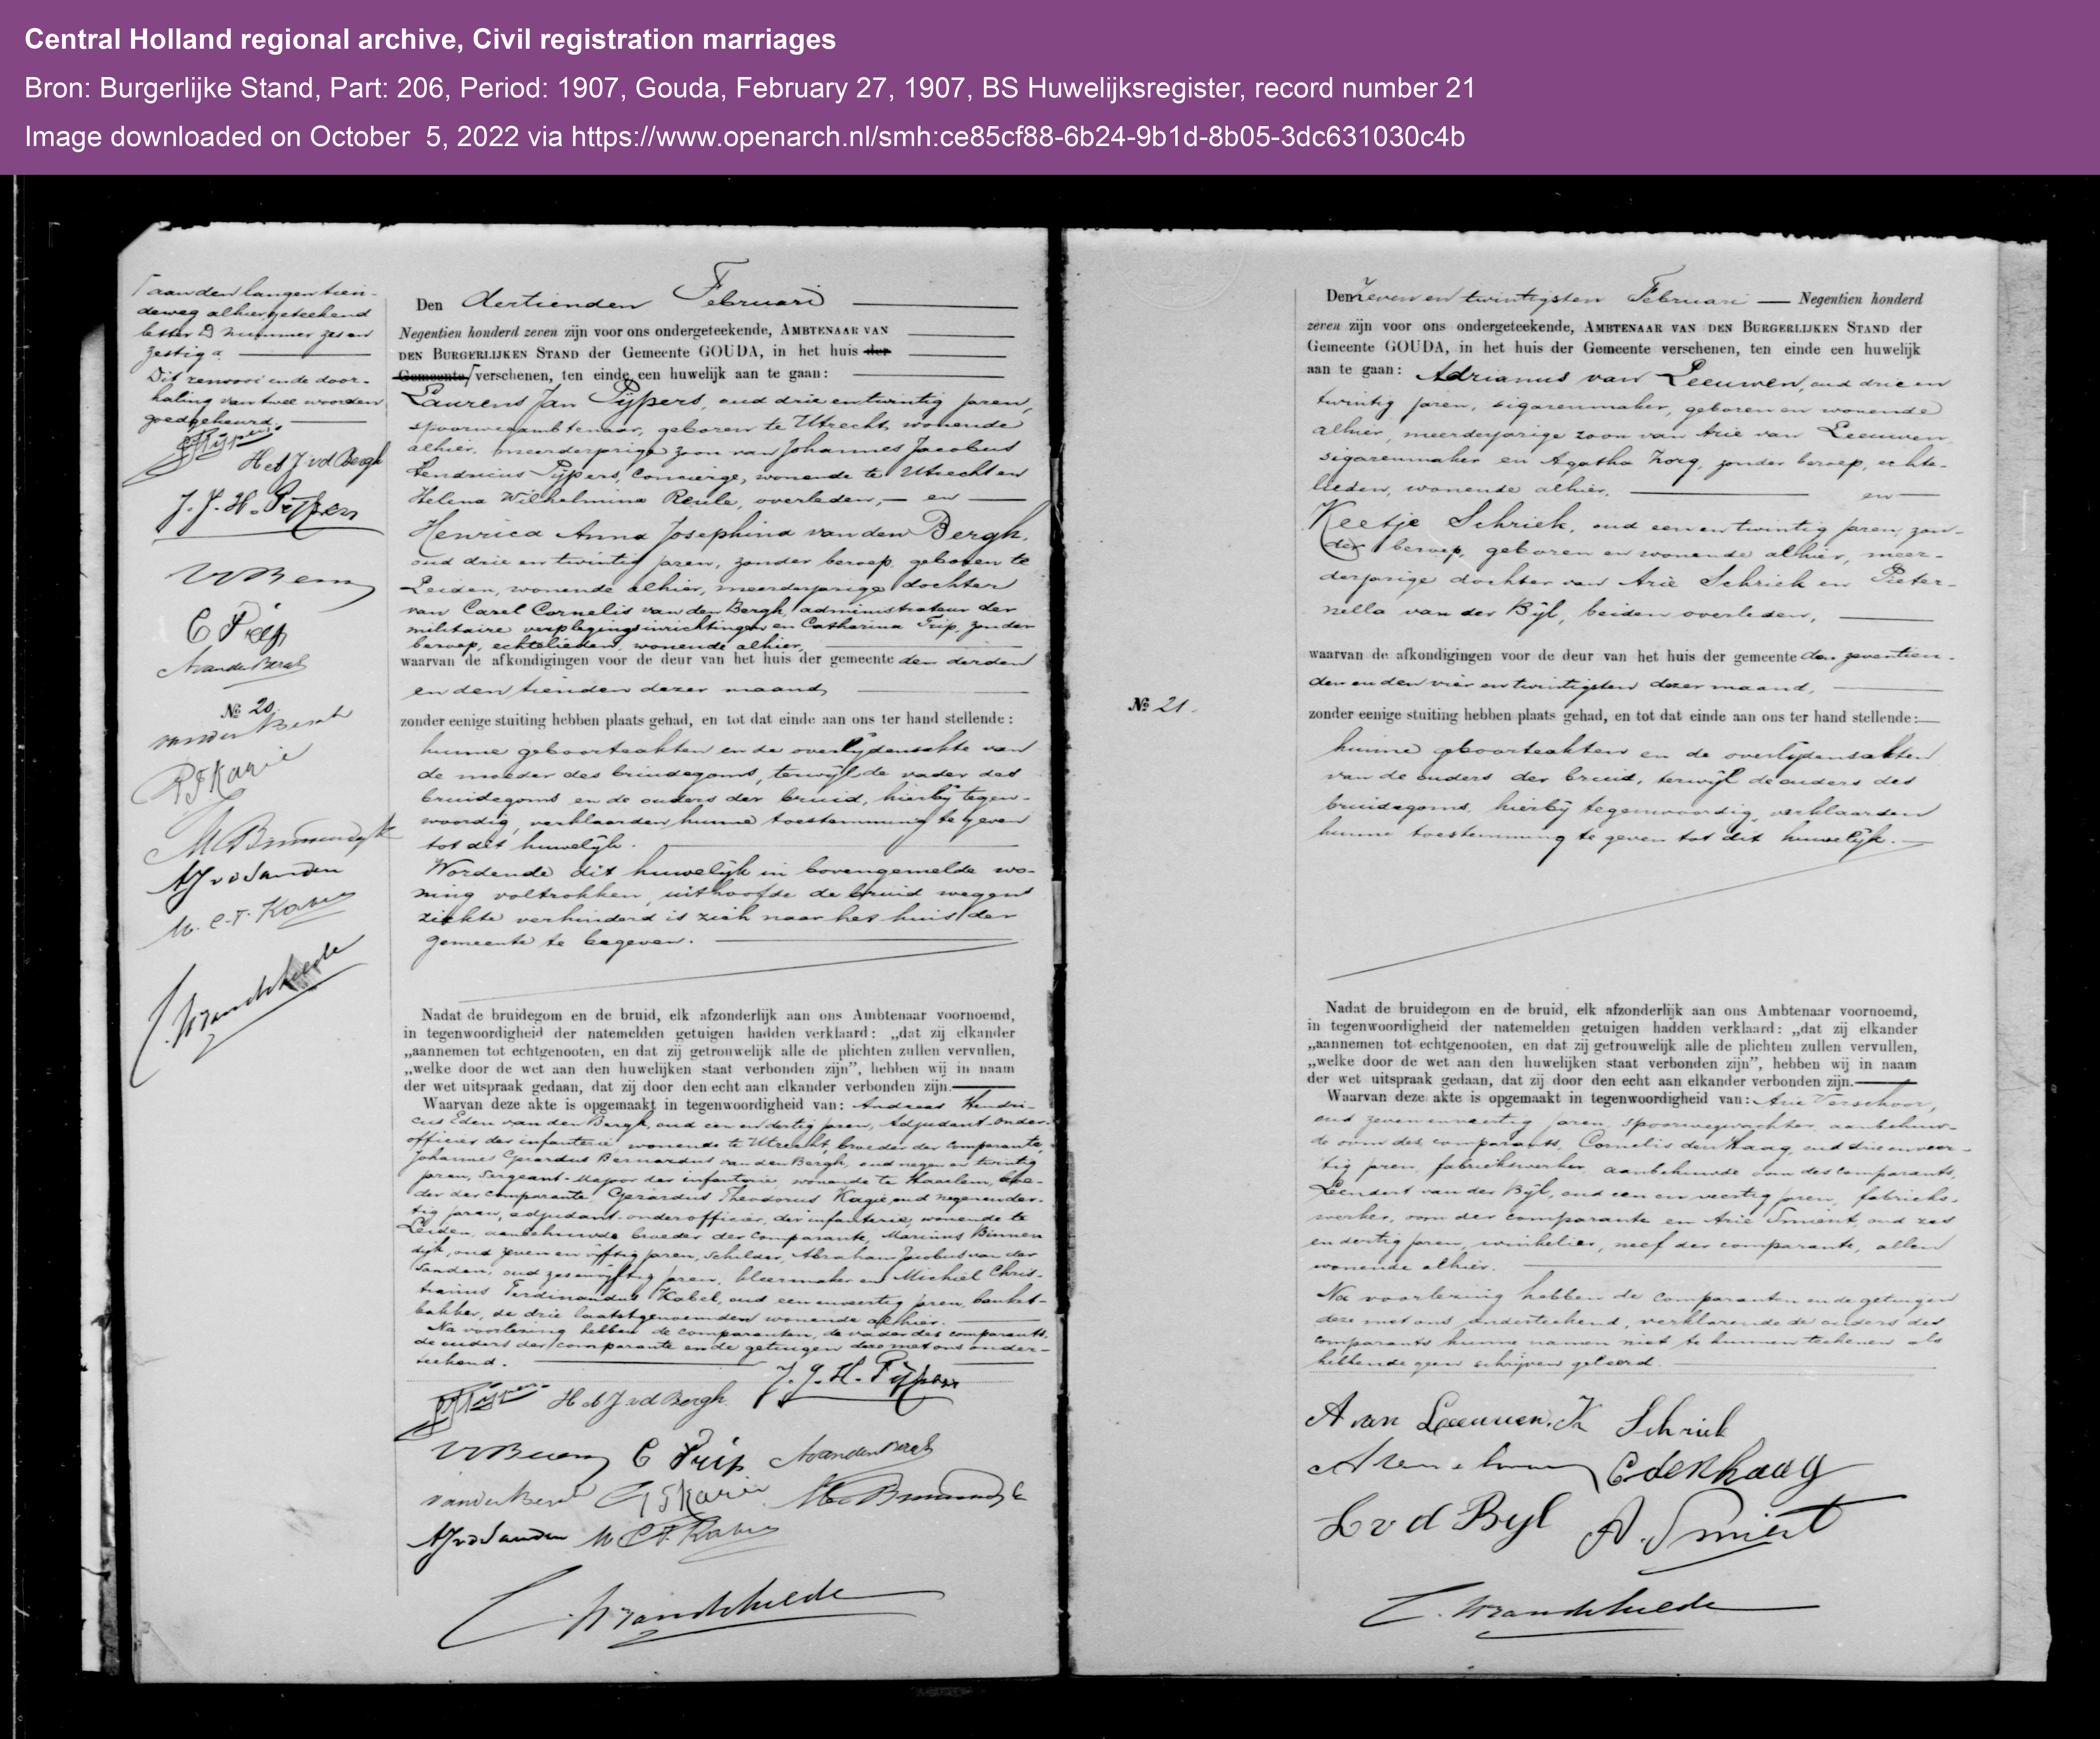 Central Holland regional archive, Civil registration marriages
Bron: Burgerlijke Stand, Part: 206, Period: 1907, Gouda, February 27, 1907, BS Huwelijksregister, record number 21
Image downloaded on October 5, 2022 via https://www.openarch.nl/smh:ce85cf88-6b24-9b1d-8b05-3dc631030c4b
aan den langen tien-
deweg alhier, geteekend
letter D nummer zes en
zestig a.
Dit renvooi en de door-
haling van twee woorden
goedgekeurd.
H A J v d Bergh
J. J. H. Pijpers
C Trip
AvandenBergh
№ 20.
vandenBergh
M Binnendijk
AJ v d Sanden
M. C. F. Kabel
Den dertienden Februari
Negentien honderd zeven zijn voor ons ondergeteekende, AMBTENAAR VAN
DEN BURGERLIJKEN STAND der Gemeente GOUDA, in het huis der
Gemeente verschenen, ten einde een huwelijk aan te gaan:
Laurens Jan Pijpers, oud drie en twintig jaren,
spoorwegambtenaar, geboren te Utrecht, wonende
alhier, meerderjarige zoon van Johannes Jacobus
Hendricus Pijpers, Concierge, wonende te Utrecht en
Helena Wilhelmina Reule, overleden, en
Henrica Anna Josephina van den Bergh,
oud drie en twintig jaren, zonder beroep, geboren te
Leiden, wonende alhier, meerderjarige dochter
van Carel Cornelis van den Bergh, administrateur der
militaire verplegingsinrichtingen en Catharina Trip, zonder
beroep, echtelieden, wonende alhier,
waarvan de afkondigingen voor de deur van het huis der gemeente den derden
en den tienden dezer maand,
zonder eenige stuiting hebben plaats gehad, en tot dat einde aan ons ter hand stellende:
hunne geboorteakten en de overlijdensakte van
de moeder des bruidegoms, terwijl de vader des
bruidegoms en de ouders der bruid, hierbij tegen-
woordig, verklaarden hunne toestemming te geven
tot dit huwelijk.
Wordende dit huwelijk in bovengemelde wo-
ning voltrokken, uithoofde de bruid wegens
ziekte verhinderd is zich naar het huis der
gemeente te begeven.
Nadat de bruidegom en de bruid, elk afzonderlijk aan ons Ambtenaar voornoemd,
in tegenwoordigheid der natemelden getuigen hadden verklaard: „dat zij elkander
„aannemen tot echtgenooten, en dat zij getrouwelijk alle de plichten zullen vervullen,
„welke door de wet aan den huwelijken staat verbonden zijn”, hebben wij in naam
der wet uitspraak gedaan, dat zij door den echt aan elkander verbonden zijn.
Waarvan deze akte is opgemaakt in tegenwoordigheid van: Andreas Hendri-
cus Eden van den Bergh, oud een en dertig jaren, Adjudant-onder-
officier der infanterie, wonende te Utrecht, broeder der comparante,
Johannes Gerardus Bernardus van den Bergh, oud negen en twintig
jaren, Sergeant-Majoor der infanterie, wonende te Haarlem, broe-
der der comparante, Gerardus Theodorus Kagie, oud negen en der-
tig jaren, adjudant-onderofficier der infanterie, wonende te
Leiden, aanbehuwde broeder der comparante, Marinus Binnen
dijk, oud zeven en vijftig jaren, schilder, Abraham Jacobus van der
Sanden, oud zes en vijftig jaren, kleermaker en Michiel Chris-
tianus Ferdinandus Kabel, oud een en veertig jaren, banket-
bakker, de drie laatstgenoemden wonende alhier.
Na voorlezing hebben de comparanten, de vader des comparants,
de ouders der comparante en de getuigen deze met ons onder-
teekend.
H A J v d Bergh. J. J. H. Pijpers
C Trip AvandenBergh
vandenBergh
AJ v d Sanden M C F Kabel
№ 21.
Den zeven en twintigsten Februari Negentien honderd
zeven zijn voor ons ondergeteekende, AMBTENAAR VAN DEN BURGERLIJKEN STAND der
Gemeente GOUDA, in het huis der Gemeente verschenen, ten einde een huwelijk
aan te gaan: Adrianus van Leeuwen, oud drie en
twintig jaren, sigarenmaker, geboren en wonende
alhier, meerderjarige zoon van Arie van Leeuwen,
sigarenmaker en Agatha Zorg, zonder beroep, echte-
lieden, wonende alhier, en
Keetje Schriek, oud een en twintig jaren, zon-
der beroep, geboren en wonende alhier, meer-
derjarige dochter van Arie Schriek en Pieter-
nella van der Bijl, beiden overleden,
waarvan de afkondigingen voor de deur van het huis der gemeente den zeventien-
den en den vier en twintigsten dezer maand,
zonder eenige stuiting hebben plaats gehad, en tot dat einde aan ons ter hand stellende:
hunne geboorteakten en de overlijdensakten
van de ouders der bruid, terwijl de ouders des
bruidegoms, hierbij tegenwoordig, verklaarden
hunne toestemming te geven tot dit huwelijk.
Nadat de bruidegom en de bruid, elk afzonderlijk aan ons Ambtenaar voornoemd,
in tegenwoordigheid der natemelden getuigen hadden verklaard: „dat zij elkander
„aannemen tot echtgenooten, en dat zij getrouwelijk alle de plichten zullen vervullen,
„welke door de wet aan den huwelijken staat verbonden zijn”, hebben wij in naam
der wet uitspraak gedaan, dat zij door den echt aan elkander verbonden zijn.
Waarvan deze akte is opgemaakt in tegenwoordigheid van: Arie Verschoor,
oud zeven en veertig jaren, spoorwegwachter, aanbehuw-
de oom des comparants, Cornelis den Haag, oud drie en veer-
tig jaren, fabriekswerker, aanbehuwde oom des comparants,
Leendert van der Bijl, oud een en veertig jaren, fabrieks-
werker, oom der comparante en Arie Smient, oud zes
en dertig jaren, winkelier, neef der comparante, allen
wonende alhier.
Na voorlezing hebben de comparanten en de getuigen
deze met ons onderteekend, verklarende de ouders des
comparants hunne namen niet te kunnen teekenen als
hebbende geen schrijven geleerd.
A van Leeuwen. K Schriek
C den haag
L v d Bijl A. Smient